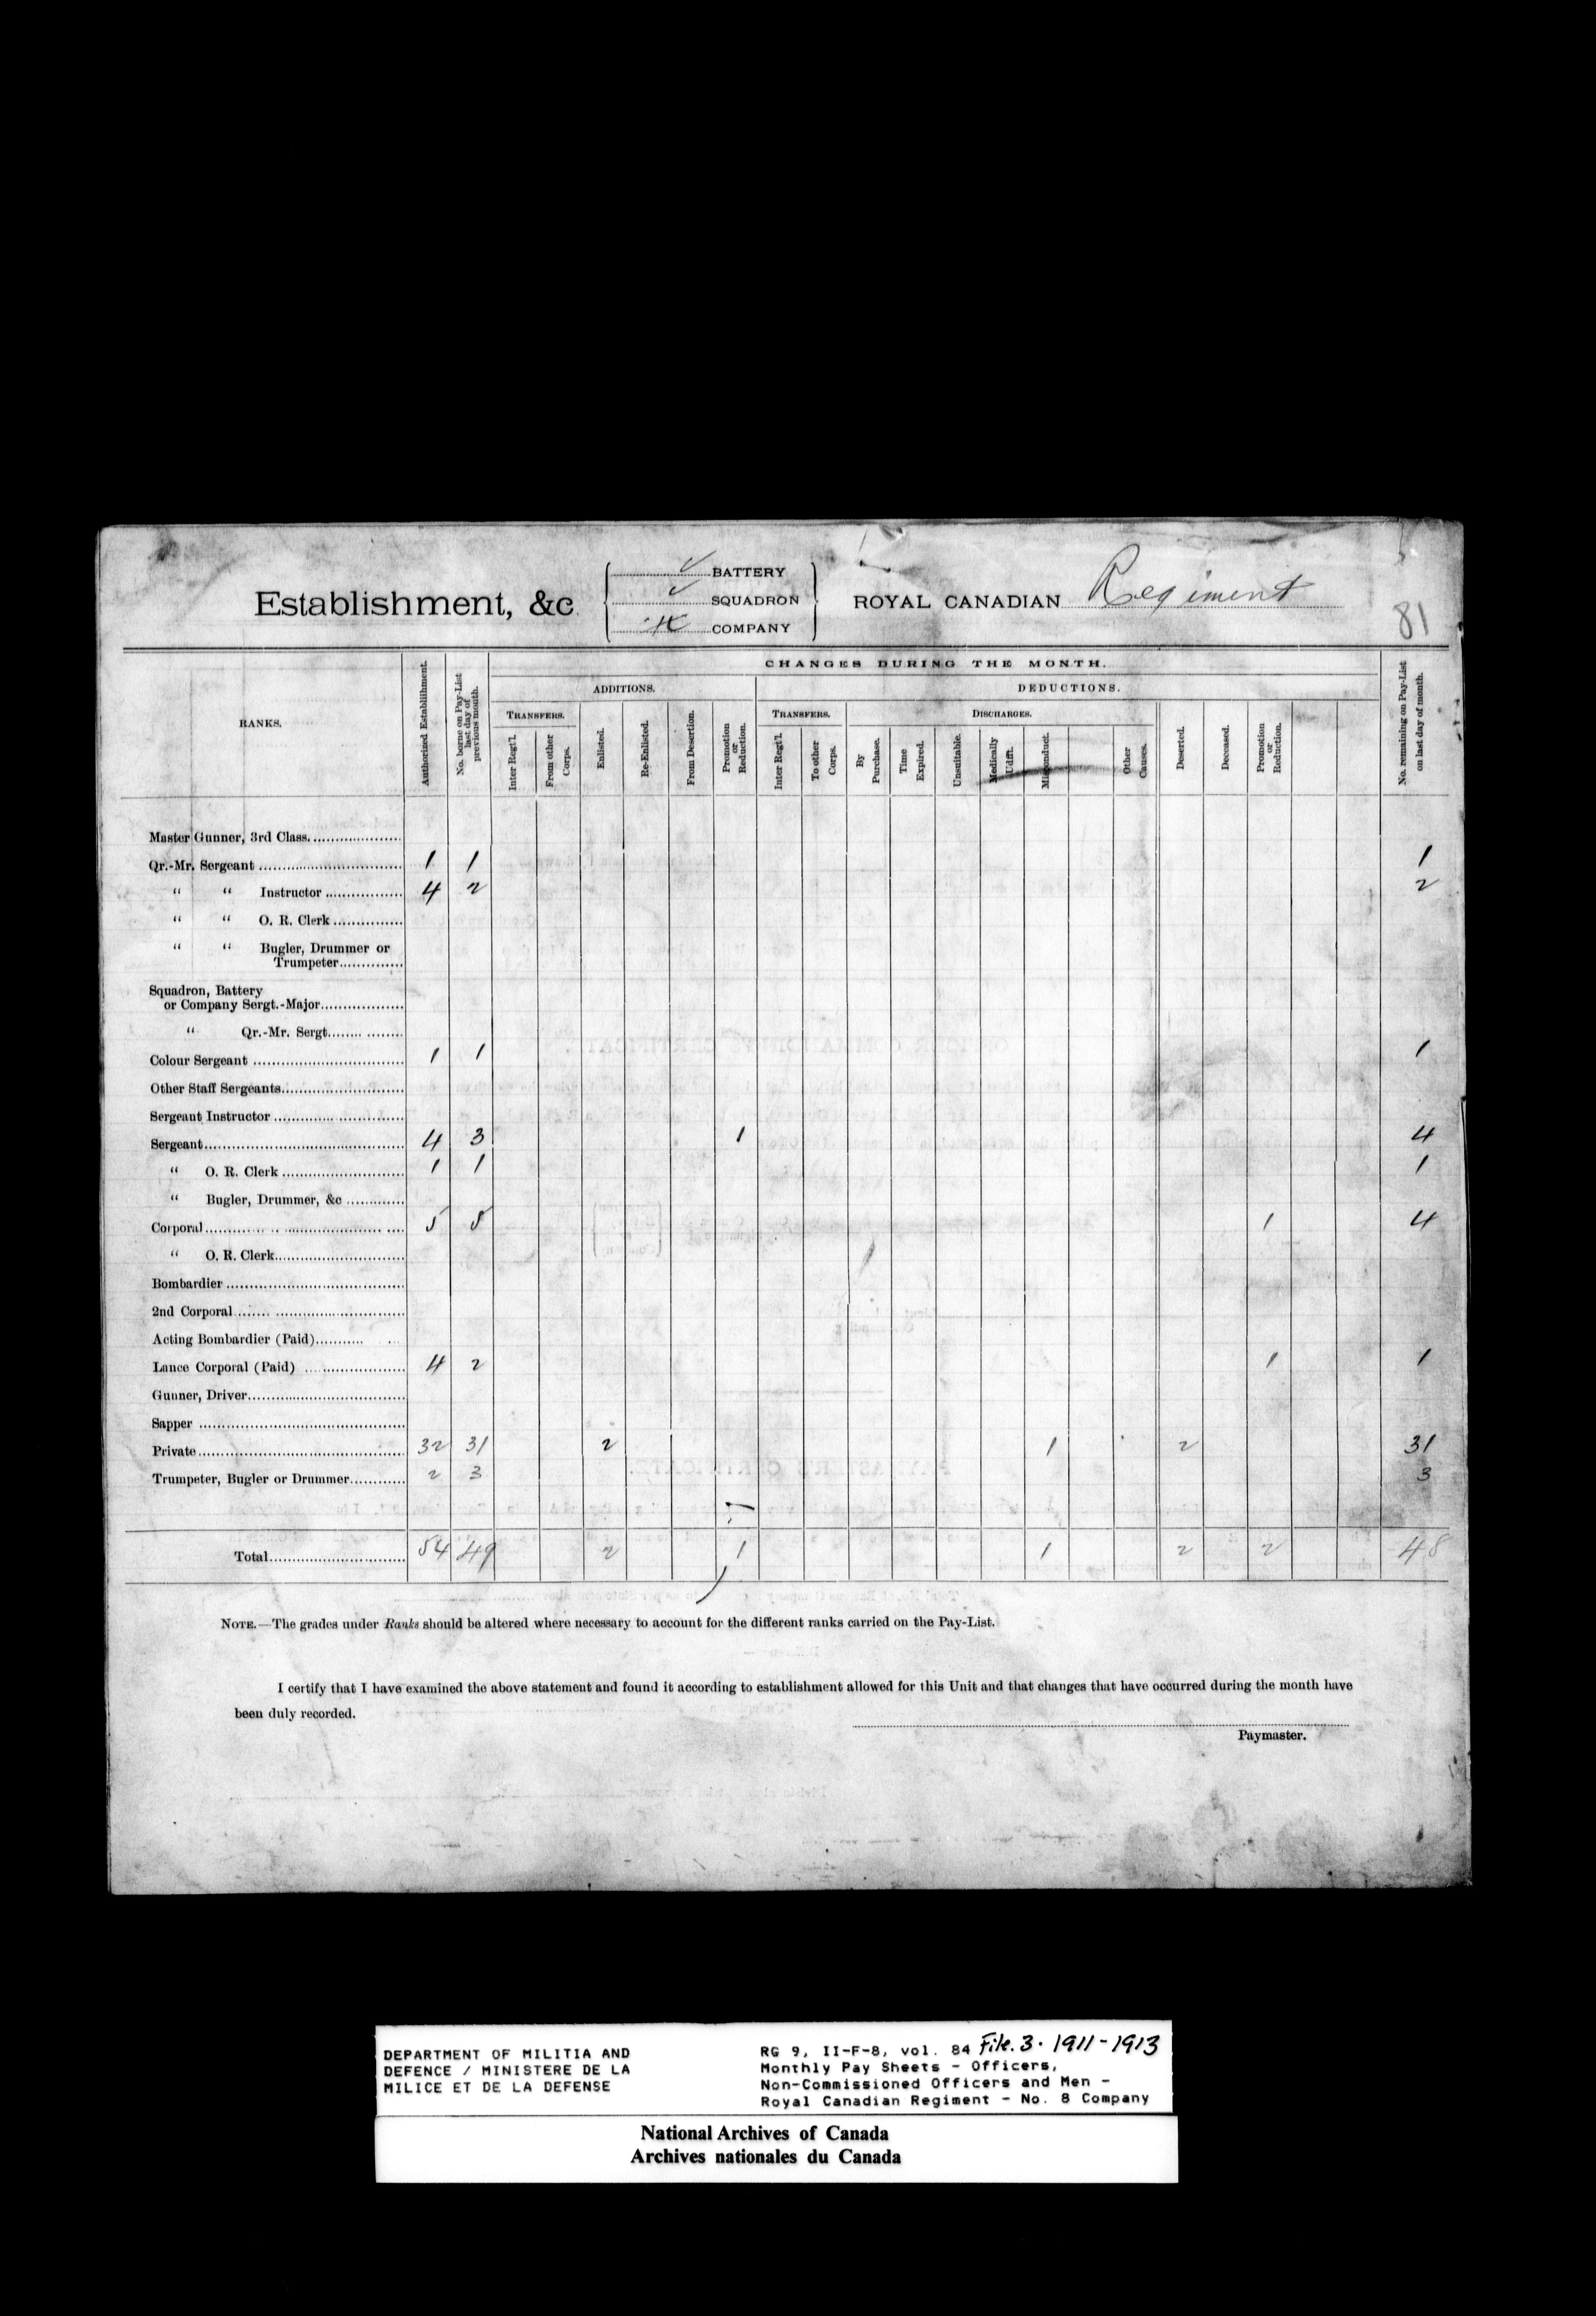 Establishment, &c
BATTERY
SQUADRON
COMPANY
ROYAL CANADIAN Regiment
81
RANKS.
Authorized Establishment.
No. borne on Pay-List last day of previous month.
CHANGES DURING THE MONTH.
ADDITIONS.
TRANSFERS.
Inter Regt'l.
From other Corps.
Enlisted.
Re-Enlisted.
From Desertion.
Promotion or Reduction.
DEDUCTIONS.
TRANSFERS.
Inter Regt'l.
To other Corps.
DISCHARGES.
By Purchase.
Time Expired.
Unsuitable.
Medically Udft.
Misconduct.
Other Causes.
Deserted.
Deceased.
Promotion or Reduction.
No. remaining on Pay-List on last day of month.
Master Gunner, 3rd Class
Qr.-Mr. Sergeant 1 1 1
" " Instructor 4 2 2
" " O. R. Clerk
" " Bugler, Drummer or
Trumpeter
Squadron, Battery
or Company Sergt.-Major
" Qr.-Mr. Sergt.
Colour Sergeant 1 1 1
Other Staff Sergeants
Sergeant Instructor
Sergeant 4 3 1 4
" O. R. Clerk 1 1 1
" Bugler, Drummer, &c
Corporal 5 5 1 4
" O. R. Clerk
Bombardier
2nd Corporal
Acting Bombardier (Paid)
Lance Corporal (Paid) 4 2 1 1
Gunner, Driver
Sapper
Private 32 31 2 1 2 31
Trumpeter, Bugler or Drummer 2 3 3
Total 54 49 2 1 1 2 2 48
NOTE.—The grades under Ranks should be altered where necessary to account for the different ranks carried on the Pay-List.
I certify that I have examined the above statement and found it according to establishment allowed for this Unit and that changes that have occurred during the month have
been duly recorded.
Paymaster.
DEPARTMENT OF MILITIA AND
DEFENCE / MINISTERE DE LA
MILICE ET DE LA DEFENSE
RG 9, II-F-8, vol. 84 File. 3. 1911-1913
Monthly Pay Sheets - Officers,
Non-Commissioned Officers and Men -
Royal Canadian Regiment - No. 8 Company
National Archives of Canada
Archives nationales du Canada